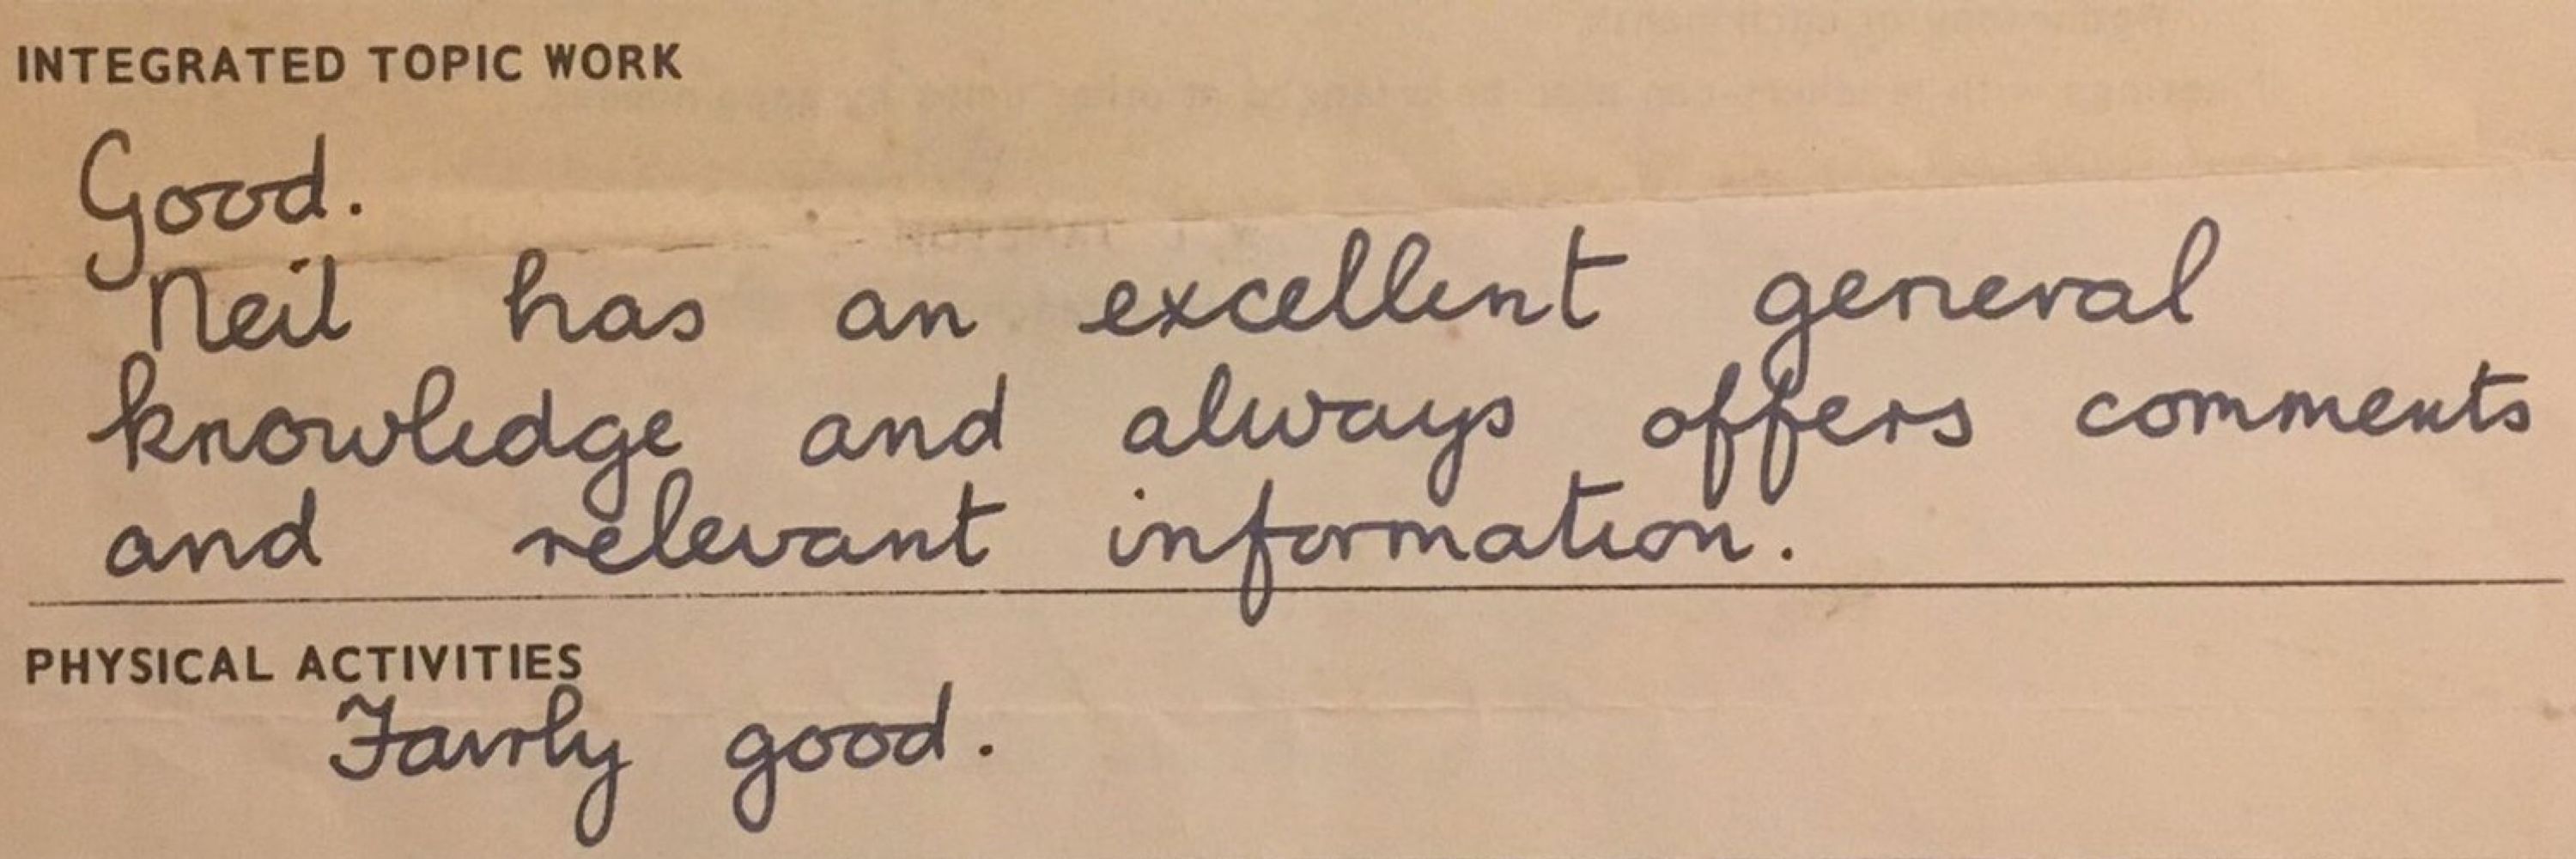 INTEGRATED TOPIC WORK
Good.
Neil has an excellent general
knowledge and always offers comments
and relevant information.
PHYSICAL ACTIVITIES
Fairly good.